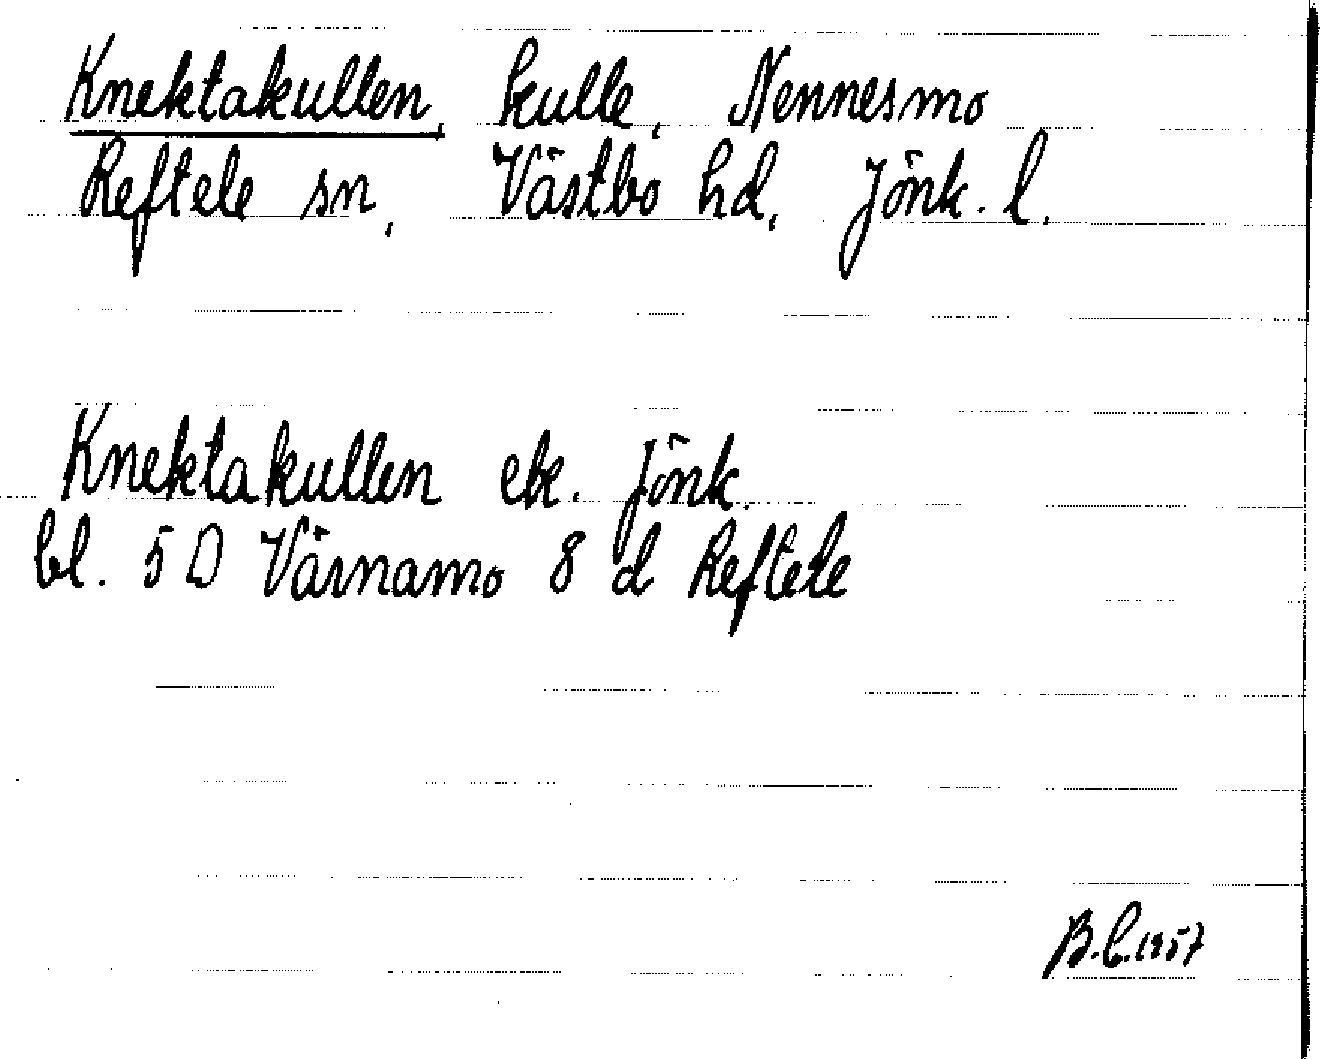 Knektakullen, kulle, Nennesmo
Reftele sn, Västbo hd, Jönk. l.
Knektakullen ek. Jönk.
bl. 5 D Värnamo 8 d Reftele
B.C. 1957